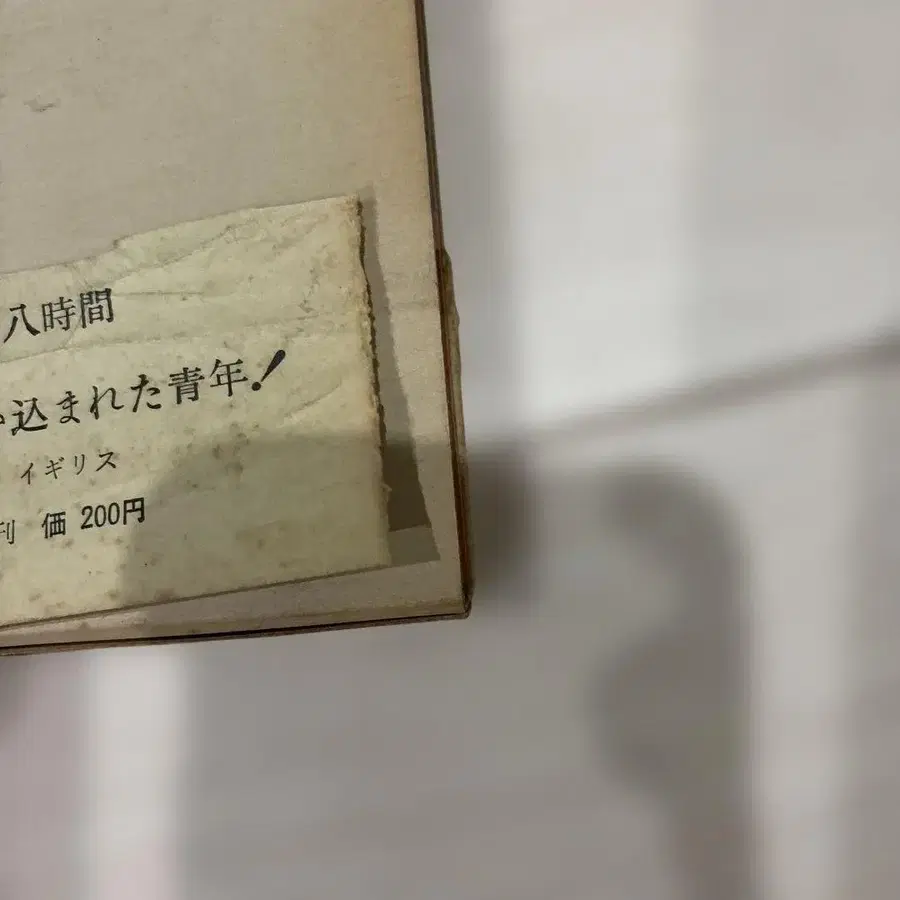 八時間
込まれた青年!
イギリス
刊 価 200円